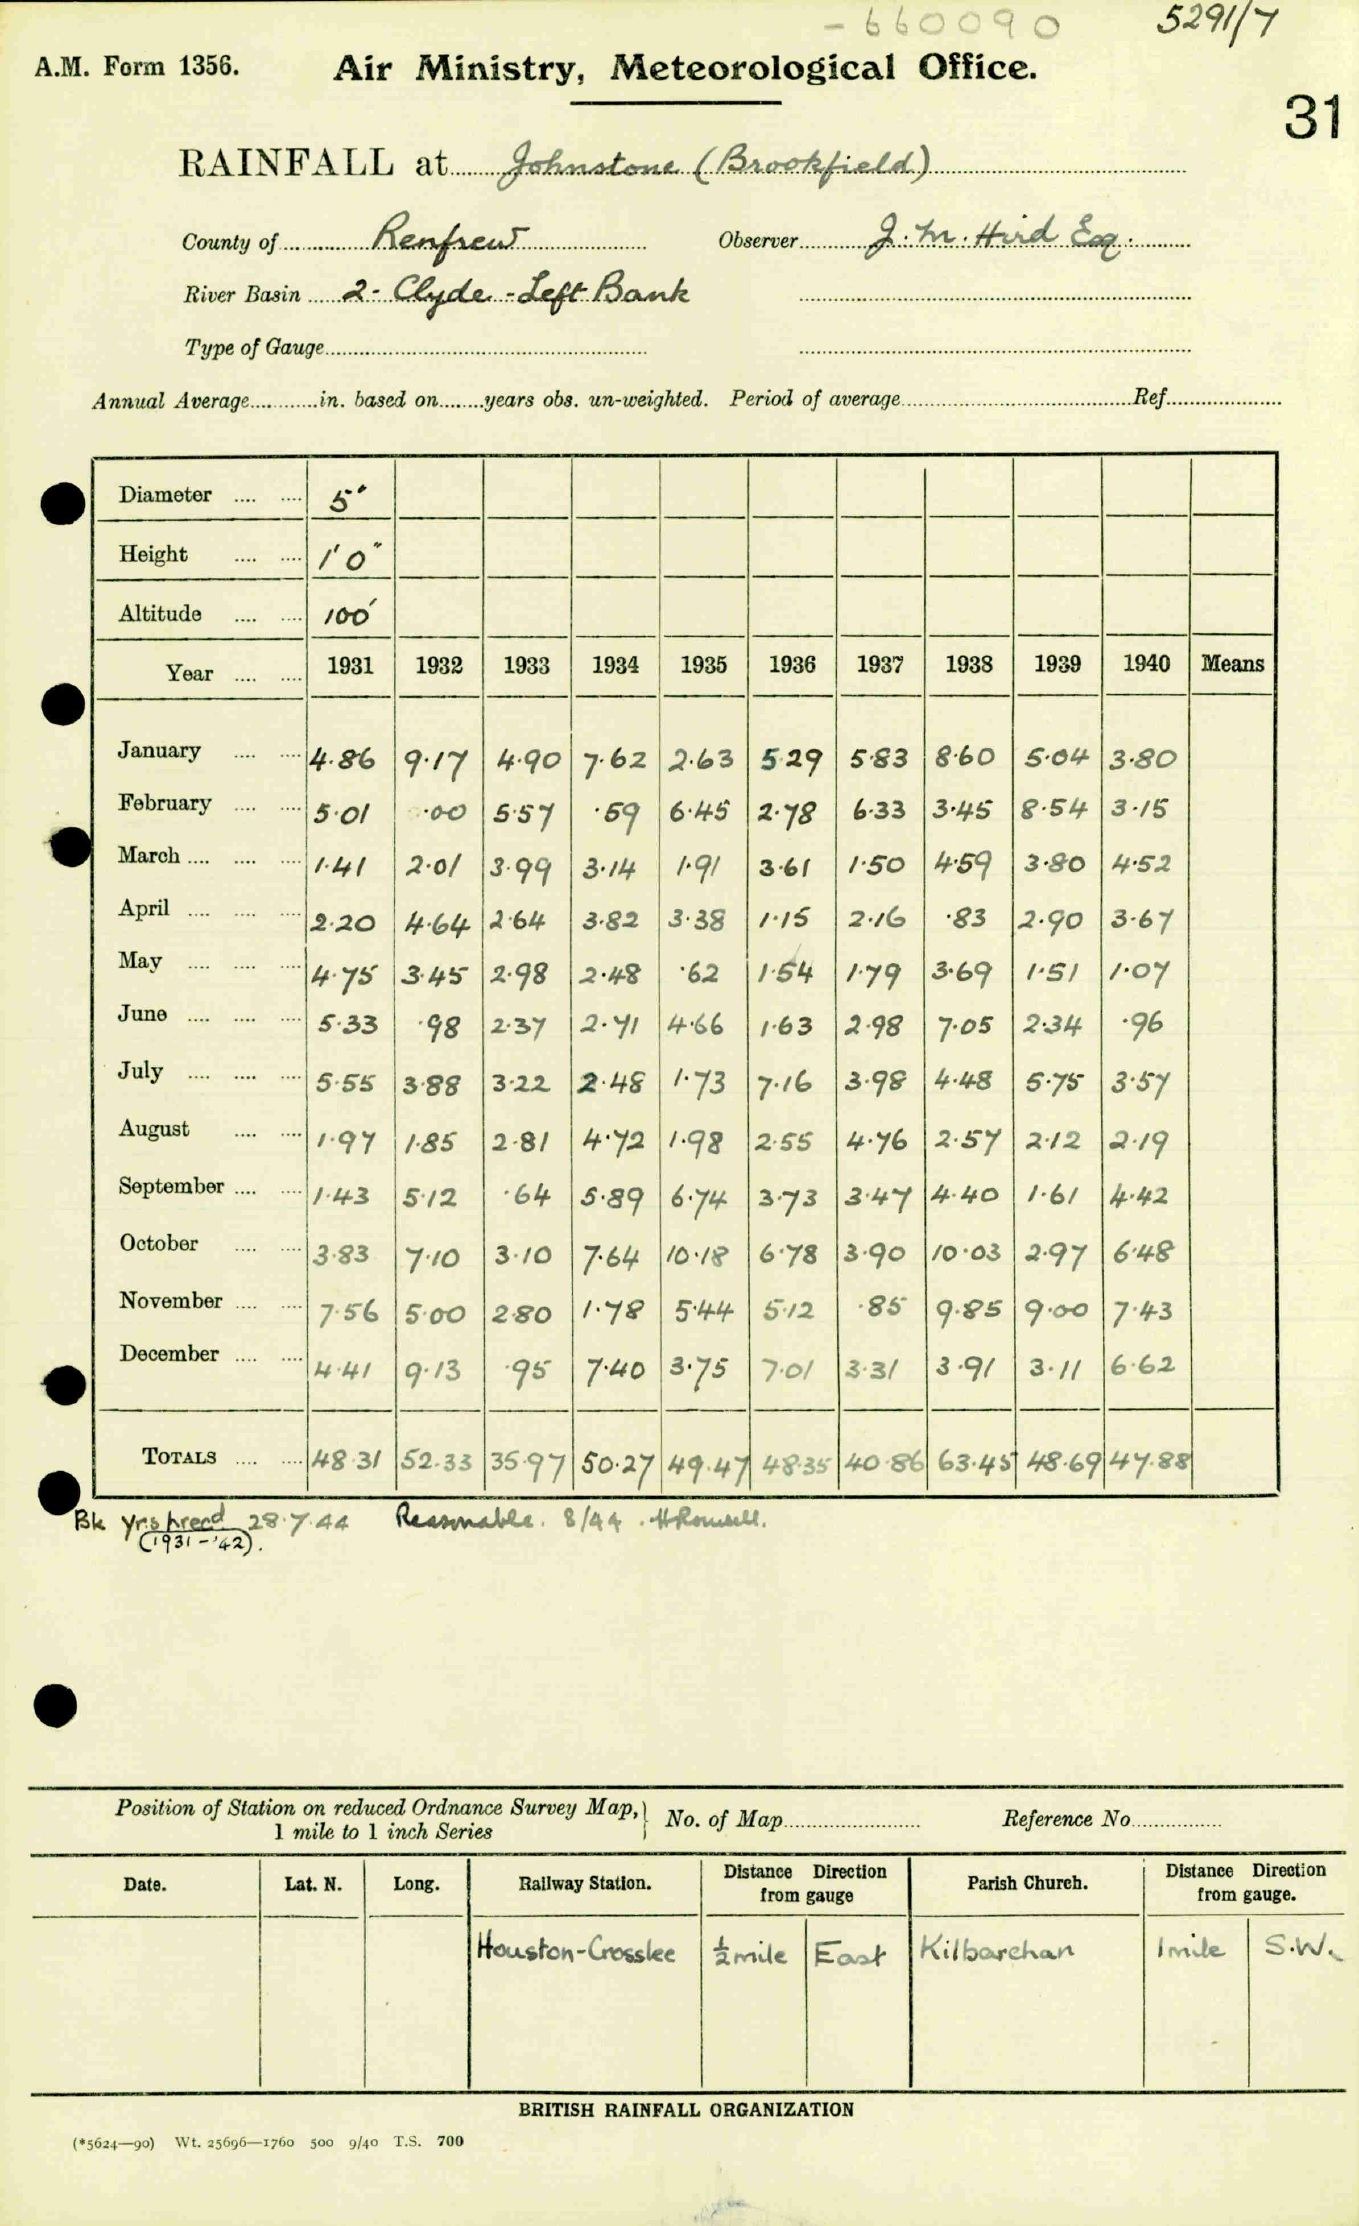 -660090 5291/7
A.M. Form 1356. Air Ministry, Meteorological Office.
31
RAINFALL at Johnstone (Brookfield)
County of Renfrew Observer J. M. Hird Esq.
River Basin 2- Clyde - Left Bank
Type of Gauge
Annual Average in. based on years obs. un-weighted. Period of average Ref
Diameter 5"
Height 1' 0"
Altitude 100'
Year 1931 1932 1933 1934 1935 1936 1937 1938 1939 1940 Means
January 4.86 9.17 4.90 7.62 2.63 5.29 5.83 8.60 5.04 3.80
February 5.01 .00 5.57 .59 6.45 2.78 6.33 3.45 8.54 3.15
March 1.41 2.01 3.99 3.14 1.91 3.61 1.50 4.59 3.80 4.52
April 2.20 4.64 2.64 3.82 3.38 1.15 2.16 .83 2.90 3.67
May 4.75 3.45 2.98 2.48 .62 1.54 1.79 3.69 1.51 1.07
June 5.33 .98 2.37 2.71 4.66 1.63 2.98 7.05 2.34 .96
July 5.55 3.88 3.22 2.48 1.73 7.16 3.98 4.48 5.75 3.57
August 1.97 1.85 2.81 4.72 1.98 2.55 4.76 2.57 2.12 2.19
September 1.43 5.12 .64 5.89 6.74 3.73 3.47 4.40 1.61 4.42
October 3.83 7.10 3.10 7.64 10.18 6.78 3.90 10.03 2.97 6.48
November 7.56 5.00 2.80 1.78 5.44 5.12 .85 9.85 9.00 7.43
December 4.41 9.13 .95 7.40 3.75 7.01 3.31 3.91 3.11 6.62
TOTALS 48.31 52.33 35.97 50.27 49.47 48.35 40.86 63.45 48.69 47.88
Bk yrs 28.7.44 Reasonable. 8/44.
(1931-'42).
Position of Station on reduced Ordnance Survey Map, No. of Map Reference No
1 mile to 1 inch Series
Date. Lat. N. Long. Railway Station. Distance Direction from gauge Parish Church. Distance Direction from gauge.
Houston-Crosslee ½ mile East Kilbarchan 1 mile S.W.
BRITISH RAINFALL ORGANIZATION
(*5624—90) Wt. 25696—1760 500 9/40 T.S. 700